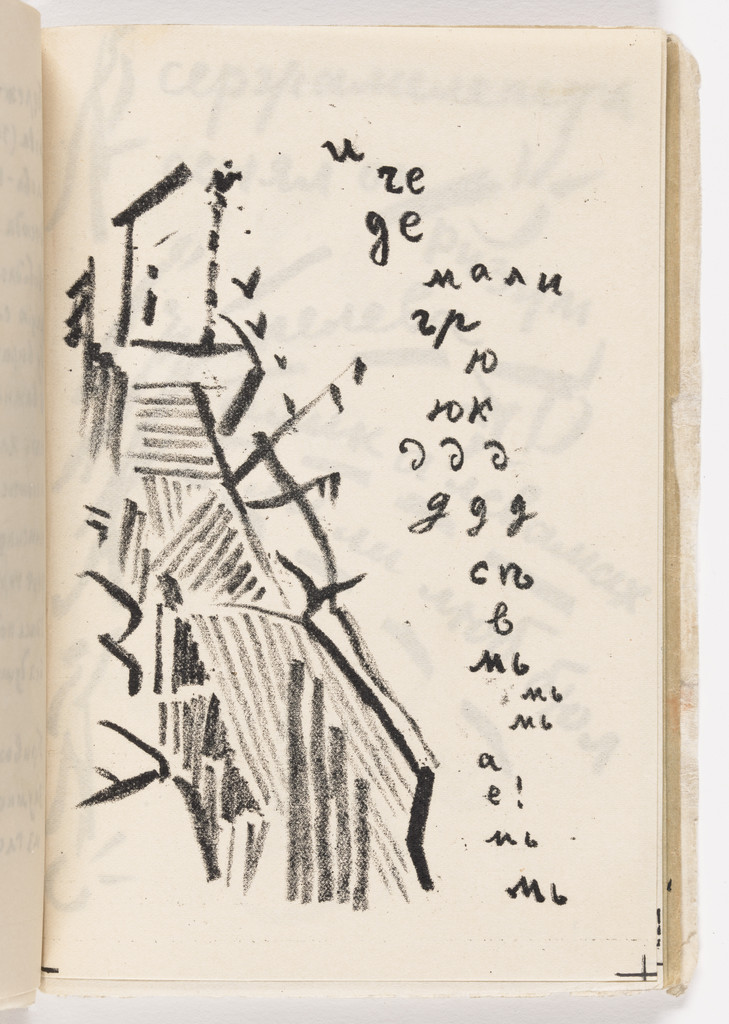 и
че
де
мали
гр
ю
юк
д д д
д д д
сп
в
мь
мь
мь
а
е!
мь
мь